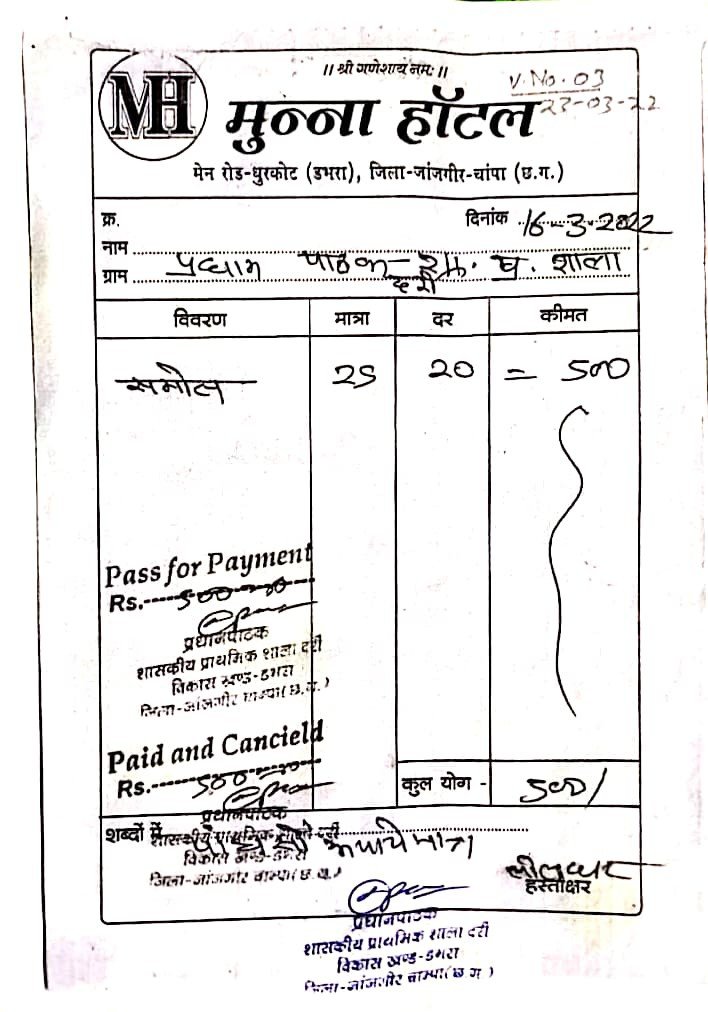 ।। श्री गणेशाय नमः ।।
V. No. 03
23-03-22
MH
मुन्ना हॉटल
मेन रोड-धुरकोट (डभरा), जिला-जांजगीर-चांपा (छ.ग.)
क्र.
दिनांक 16-3-2022
नाम
ग्राम प्रधान पाठक - शा. प्रा. शाला
दर्री
विवरण मात्रा दर कीमत
समोसा 25 20 = 500
Pass for Payment
Rs. 500=00
प्रधानपाठक
शासकीय प्राथमिक शाला दर्री
विकास खण्ड-डभरा
जिला-जांजगीर चाम्पा(छ.ग.)
Paid and Cancield
Rs. 500=00
कुल योग - 500/
प्रधानपाठक
शब्दों में पांच सौ रूपये मात्र
शासकीय प्राथमिक शाला दर्री
विकास खण्ड-डभरा
जिला-जांजगीर चाम्पा(छ.ग.)
हस्ताक्षर
प्रधानपाठक
शासकीय प्राथमिक शाला दर्री
विकास खण्ड-डभरा
जिला-जांजगीर चाम्पा(छ.ग.)